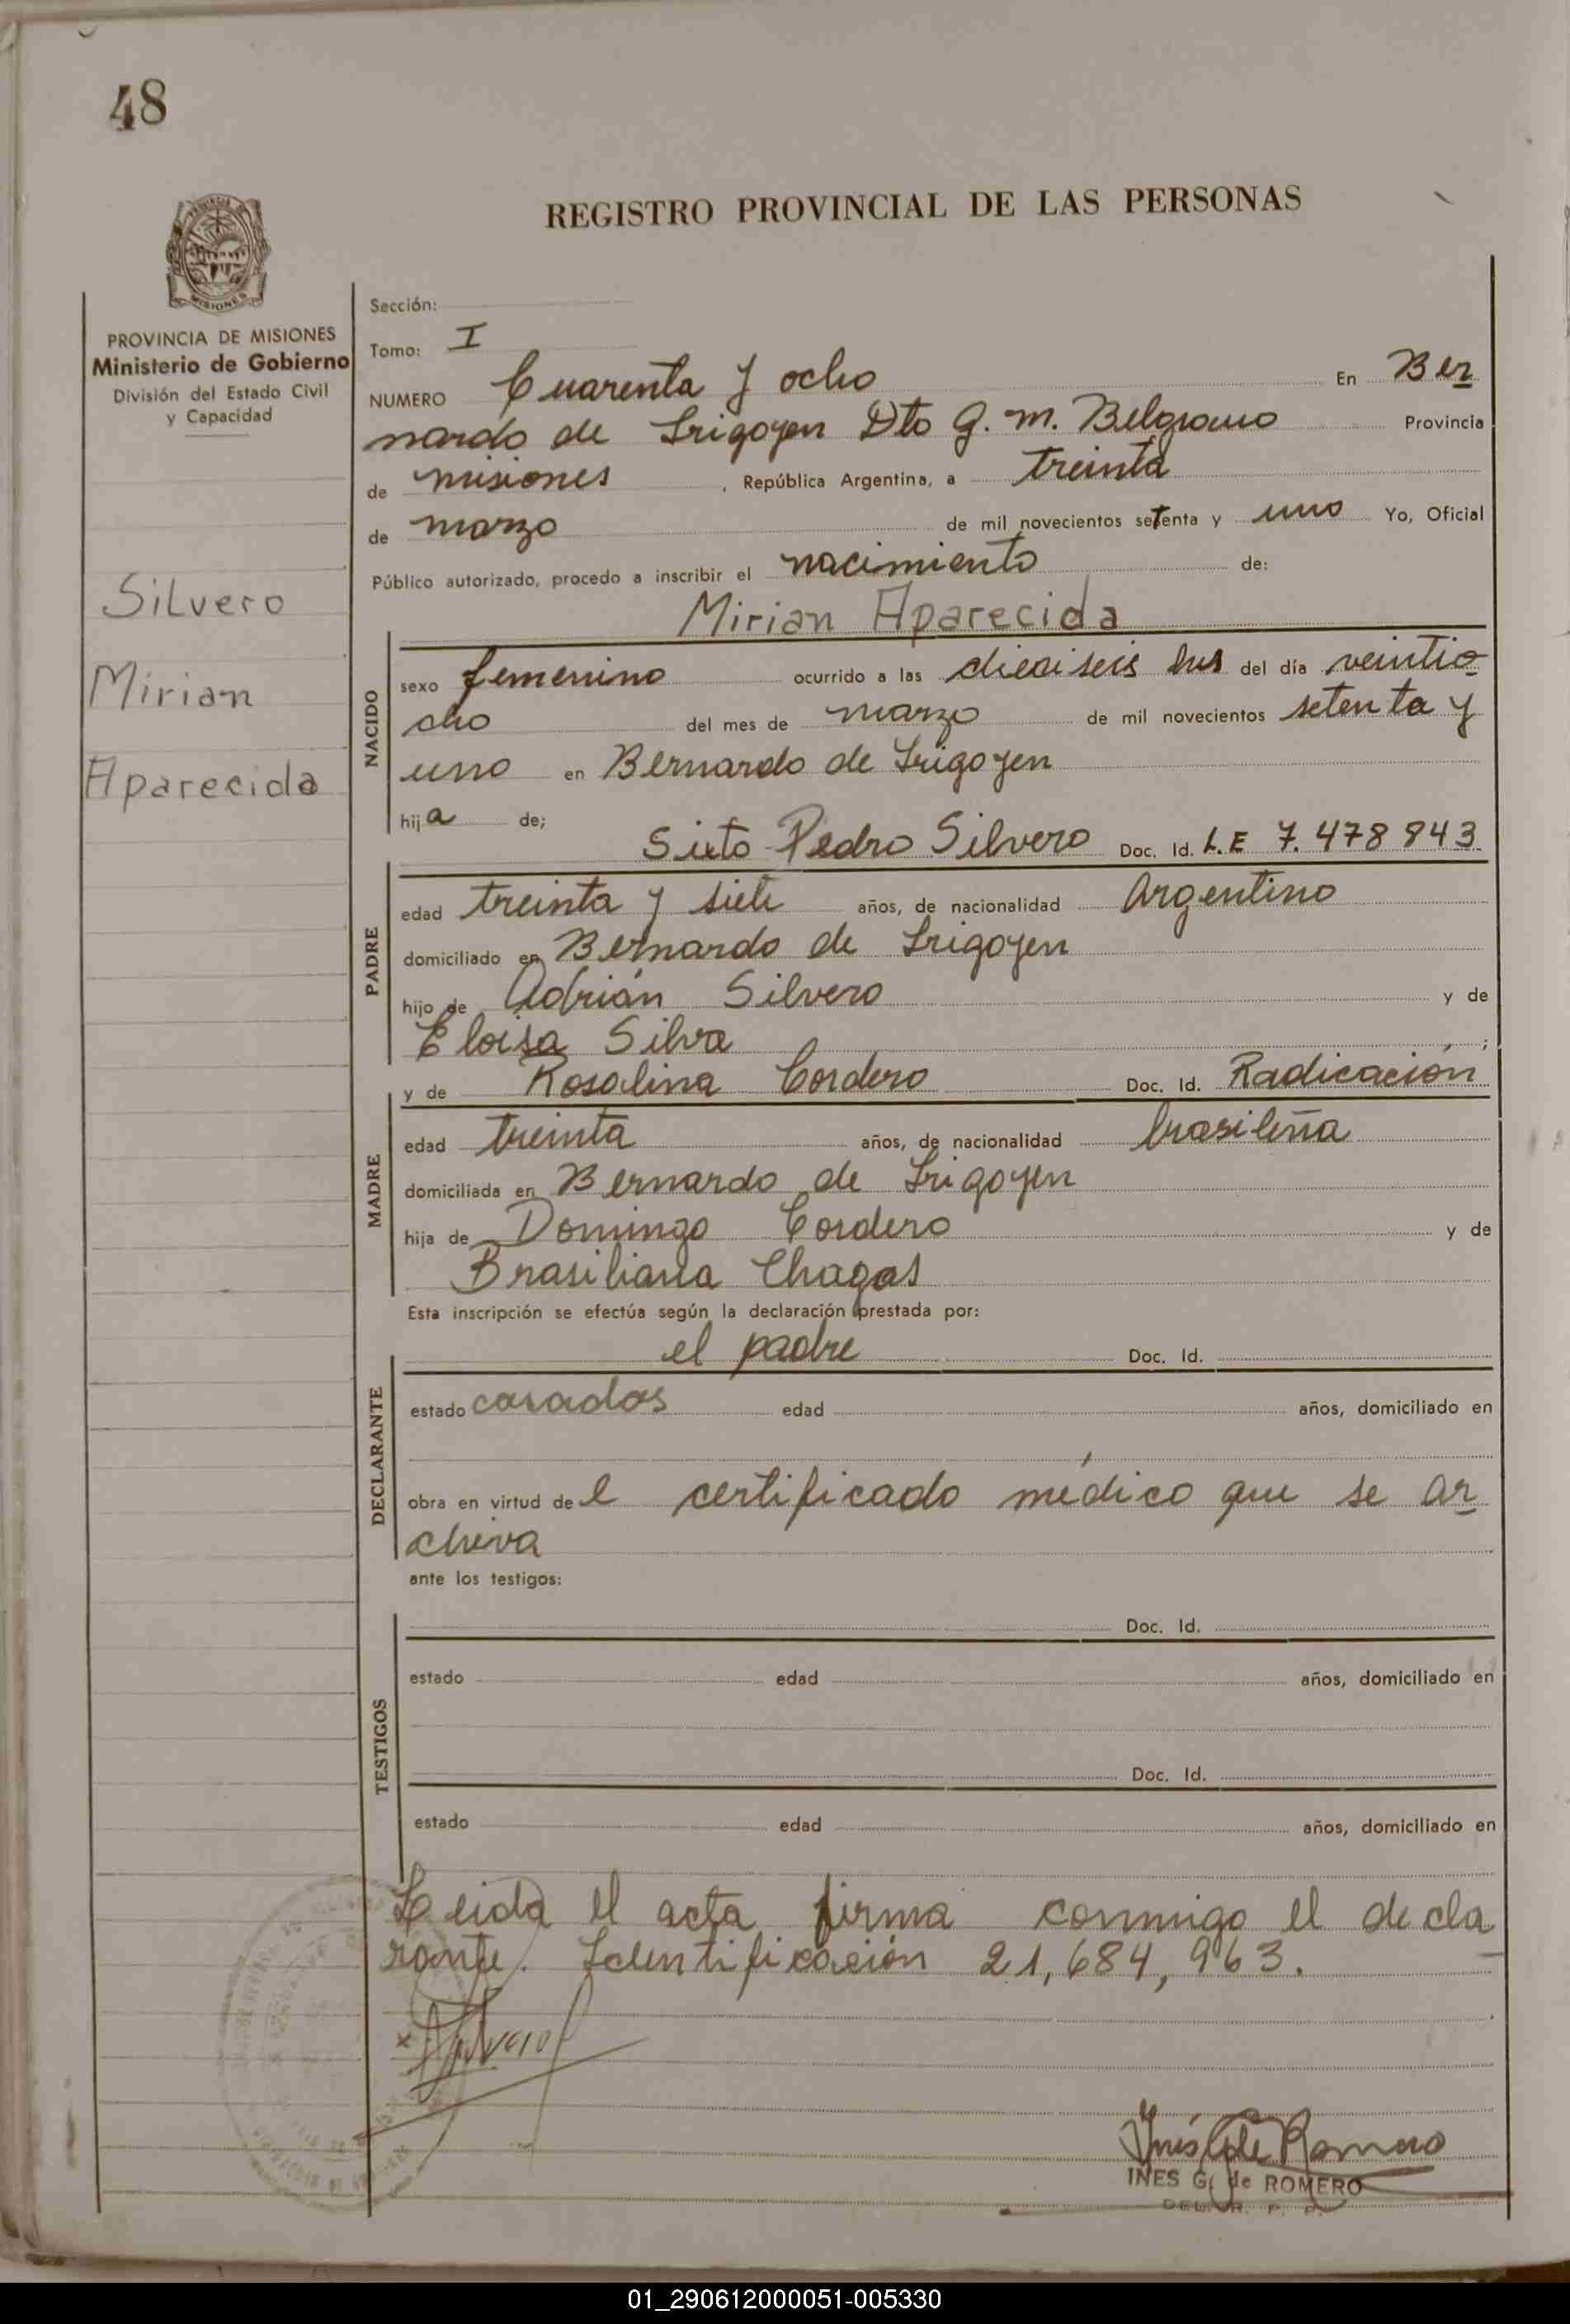 48
REGISTRO PROVINCIAL DE LAS PERSONAS
MISIONES
PROVINCIA DE MISIONES
Ministerio de Gobierno
División del Estado Civil
y Capacidad
Silvero
Mirian
Aparecida
Sección:
Tomo: I
NUMERO Cuarenta y ocho En Ber
nardo de Irigoyen Dto G. M. Belgrano Provincia
de misiones, República Argentina, a treinta
de marzo de mil novecientos setenta y uno Yo, Oficial
Público autorizado, procedo a inscribir el nacimiento de:
Mirian Aparecida
NACIDO
sexo femenino ocurrido a las dieciseis hrs del día veintio
cho del mes de marzo de mil novecientos setenta y
uno en Bernardo de Irigoyen
hija de;
Sixto Pedro Silvero Doc. Id. L.E 7.478843
PADRE
edad treinta y siete años, de nacionalidad Argentino
domiciliado en Bernardo de Irigoyen
hijo de Adrián Silvero y de
Eloisa Silva ;
y de Rosalina Cordero Doc. Id. Radicación
MADRE
edad treinta años, de nacionalidad brasileña
domiciliada en Bernardo de Irigoyen
hija de Domingo Cordero y de
Brasiliana Chagas
Esta inscripción se efectúa según la declaración prestada por:
el padre Doc. Id.
DECLARANTE
estado casados edad años, domiciliado en
obra en virtud del certificado médico que se ar
chiva
ante los testigos:
Doc. Id.
TESTIGOS
estado edad años, domiciliado en
Doc. Id.
estado edad años, domiciliado en
Leida el acta firma conmigo el decla
rante. Identificación 21,684,963.
x Silvero
Inés G de Romero
INES G. de ROMERO
DEL. R. P. P.
01_290612000051-005330